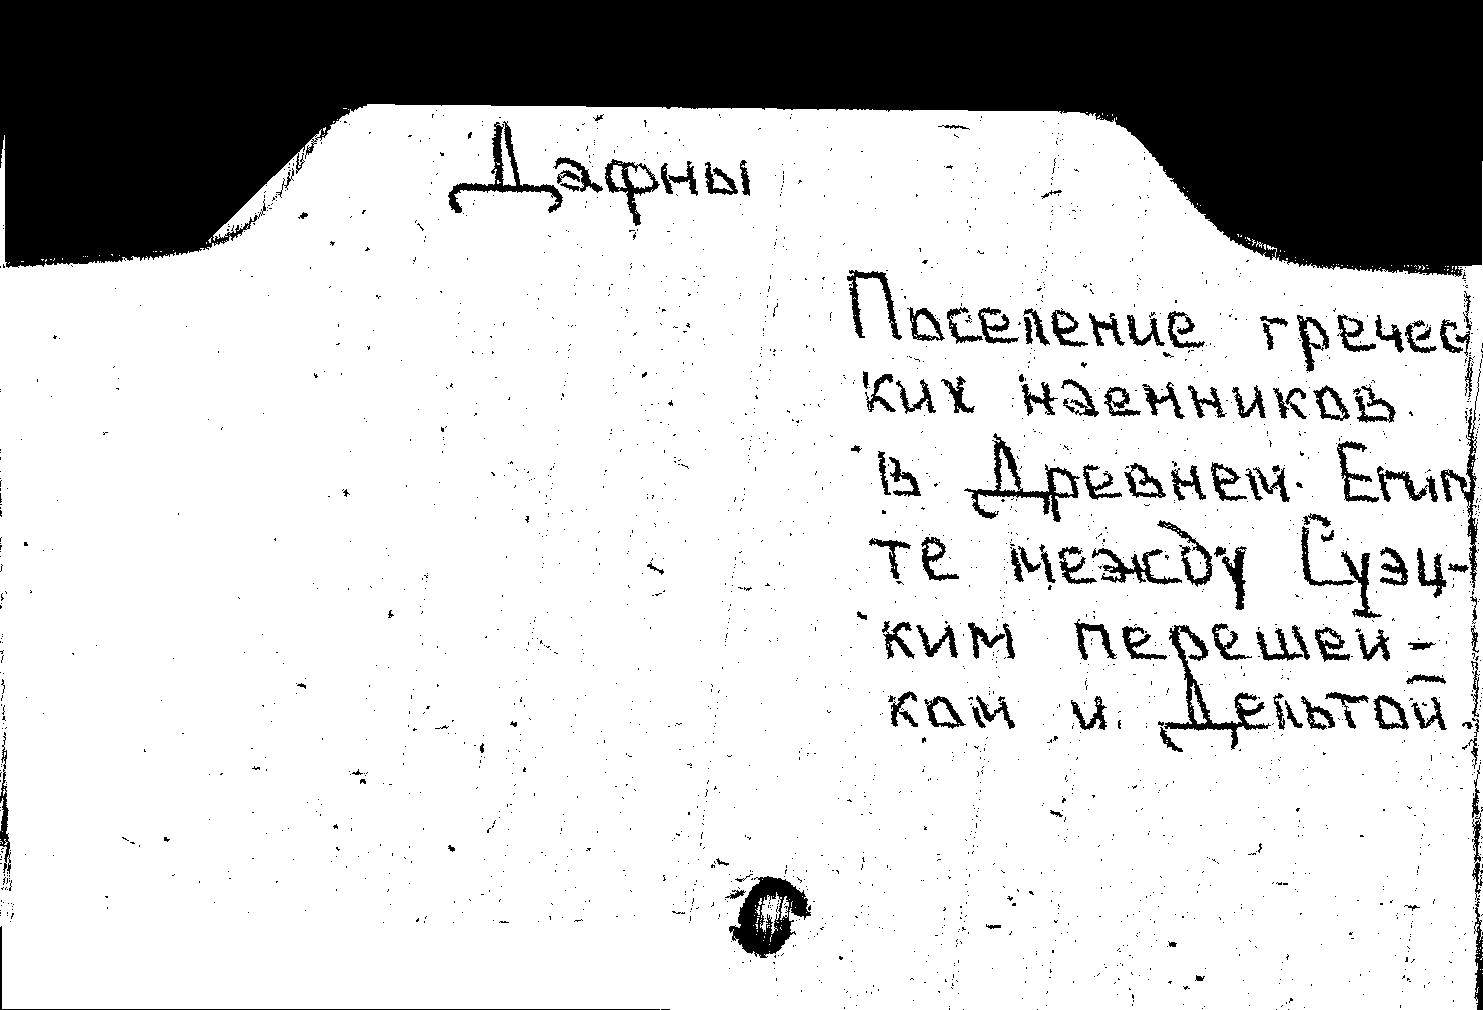 Дафны
Поселение гречес
ких наемников
в Древнем Егип
те между Суэц-
ким перешей-
ком и Дельтой.